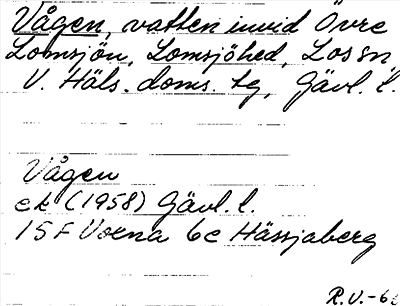 Vågen, vatten invid Övre
Lomsjön, Lomsjöhed, Los sn
V. Häls. doms. tg, Gävl. l.
Vågen
ek (1958) Gävl. l.
15 F Voxna 6c Hässjaberg
R.V.-6